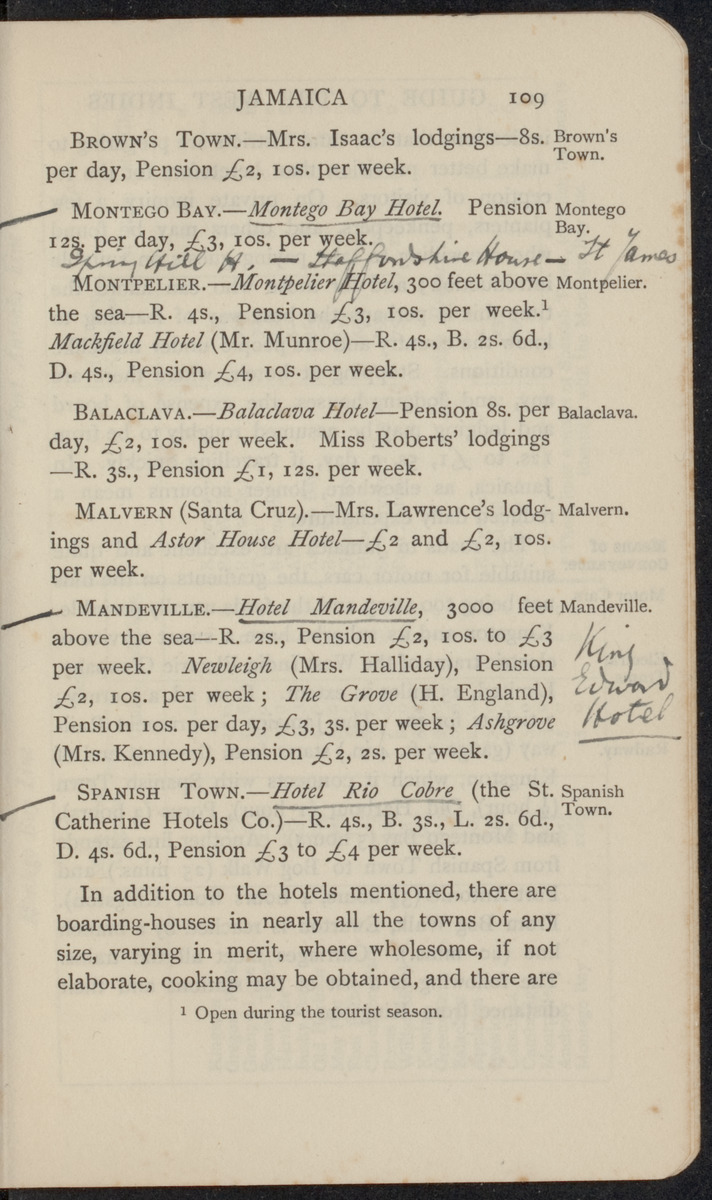 JAMAICA 109
BROWN'S TOWN.—Mrs. Isaac's lodgings—8s.
per day, Pension £2, 10s. per week.
Brown's
Town.
MONTEGO BAY.—Montego Bay Hotel. Pension
12s. per day, £3, 10s. per week.
Montego
Bay.
Spring Hill H. — Staffordshire House — St James
MONTPELIER.—Montpelier Hotel, 300 feet above
the sea—R. 4s., Pension £3, 10s. per week.¹
Mackfield Hotel (Mr. Munroe)—R. 4s., B. 2s. 6d.,
D. 4s., Pension £4, 10s. per week.
Montpelier.
BALACLAVA.—Balaclava Hotel—Pension 8s. per
day, £2, 10s. per week. Miss Roberts' lodgings
—R. 3s., Pension £1, 12s. per week.
Balaclava.
MALVERN (Santa Cruz).—Mrs. Lawrence's lodg-
ings and Astor House Hotel—£2 and £2, 10s.
per week.
Malvern.
MANDEVILLE.—Hotel Mandeville, 3000 feet
above the sea—R. 2s., Pension £2, 10s. to £3
per week. Newleigh (Mrs. Halliday), Pension
£2, 10s. per week; The Grove (H. England),
Pension 10s. per day, £3, 3s. per week; Ashgrove
(Mrs. Kennedy), Pension £2, 2s. per week.
Mandeville.
King
Edward
Hotel
SPANISH TOWN.—Hotel Rio Cobre (the St.
Catherine Hotels Co.)—R. 4s., B. 3s., L. 2s. 6d.,
D. 4s. 6d., Pension £3 to £4 per week.
Spanish
Town.
In addition to the hotels mentioned, there are
boarding-houses in nearly all the towns of any
size, varying in merit, where wholesome, if not
elaborate, cooking may be obtained, and there are
¹ Open during the tourist season.